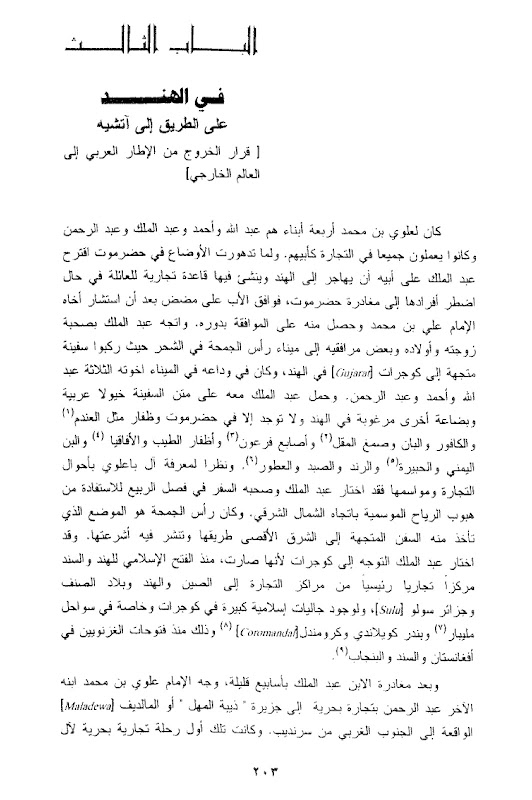 الباب الثالث
في الهند
على الطريق إلى آتشيه
[ قرار الخروج من الإطار العربي إلى
العالم الخارجي]
كان لعلوي بن محمد أربعة أبناء هم عبد الله وأحمد وعبد الملك وعبد الرحمن
وكانوا يعملون جميعا في التجارة كأبيهم. ولما تدهورت الأوضاع في حضرموت اقترح
عبد الملك على أبيه أن يهاجر إلى الهند وينشئ فيها قاعدة تجارية للعائلة في حال
اضطر أفرادها إلى مغادرة حضرموت، فوافق الأب على مضض بعد أن استشار أخاه
الإمام علي بن محمد وحصل منه على الموافقة بدوره. واتجه عبد الملك بصحبة
زوجته وأولاده وبعض مرافقيه إلى ميناء رأس الجمحة في الشحر حيث ركبوا سفينة
متجهة إلى كوجرات [Gujarat] في الهند، وكان في وداعه في الميناء اخوته الثلاثة عبد
الله وأحمد وعبد الرحمن. وحمل عبد الملك معه على متن السفينة خيولا عربية
وبضاعة أخرى مرغوبة في الهند ولا توجد إلا في حضرموت وظفار مثل العندم(١)
والكافور والبان وصمغ المقل(٢) وأصابع فرعون(٣) وأظفار الطيب والأفاقيا (٤) والبن
اليمني والحبيرة(٥) والرند والصبد والعطور(٦). ونظرا لمعرفة آل باعلوي بأحوال
التجارة ومواسمها فقد اختار عبد الملك وصحبه السفر في فصل الربيع للاستفادة من
هبوب الرياح الموسمية باتجاه الشمال الشرقي. وكان رأس الجمحة هو الموضع الذي
تأخذ منه السفن المتجهة إلى الشرق الأقصى طريقها وتنشر فيه أشرعتها. وقد
اختار عبد الملك التوجه إلى كوجرات لأنها صارت، منذ الفتح الإسلامي للهند والسند
مركزاً تجاريا رئيسياً من مراكز التجارة إلى الصين والهند وبلاد الصنف
وجزائر سولو [Sulu]، ولوجود جاليات إسلامية كبيرة في كوجرات وخاصة في سواحل
مليبار(٧) وبندر كويلاندي وكرومندل[Coromandal] (٨) وذلك منذ فتوحات الغزنويين في
أفغانستان والسند والبنجاب(٩).
وبعد مغادرة الابن عبد الملك بأسابيع قليلة، وجه الإمام علوي بن محمد ابنه
الآخر عبد الرحمن بتجارة بحرية إلى جزيرة " ذيبة المهل " أو المالديف [Maladewa]
الواقعة إلى الجنوب الغربي من سرنديب. وكانت تلك أول رحلة تجارية بحرية لآل
٢٠٣